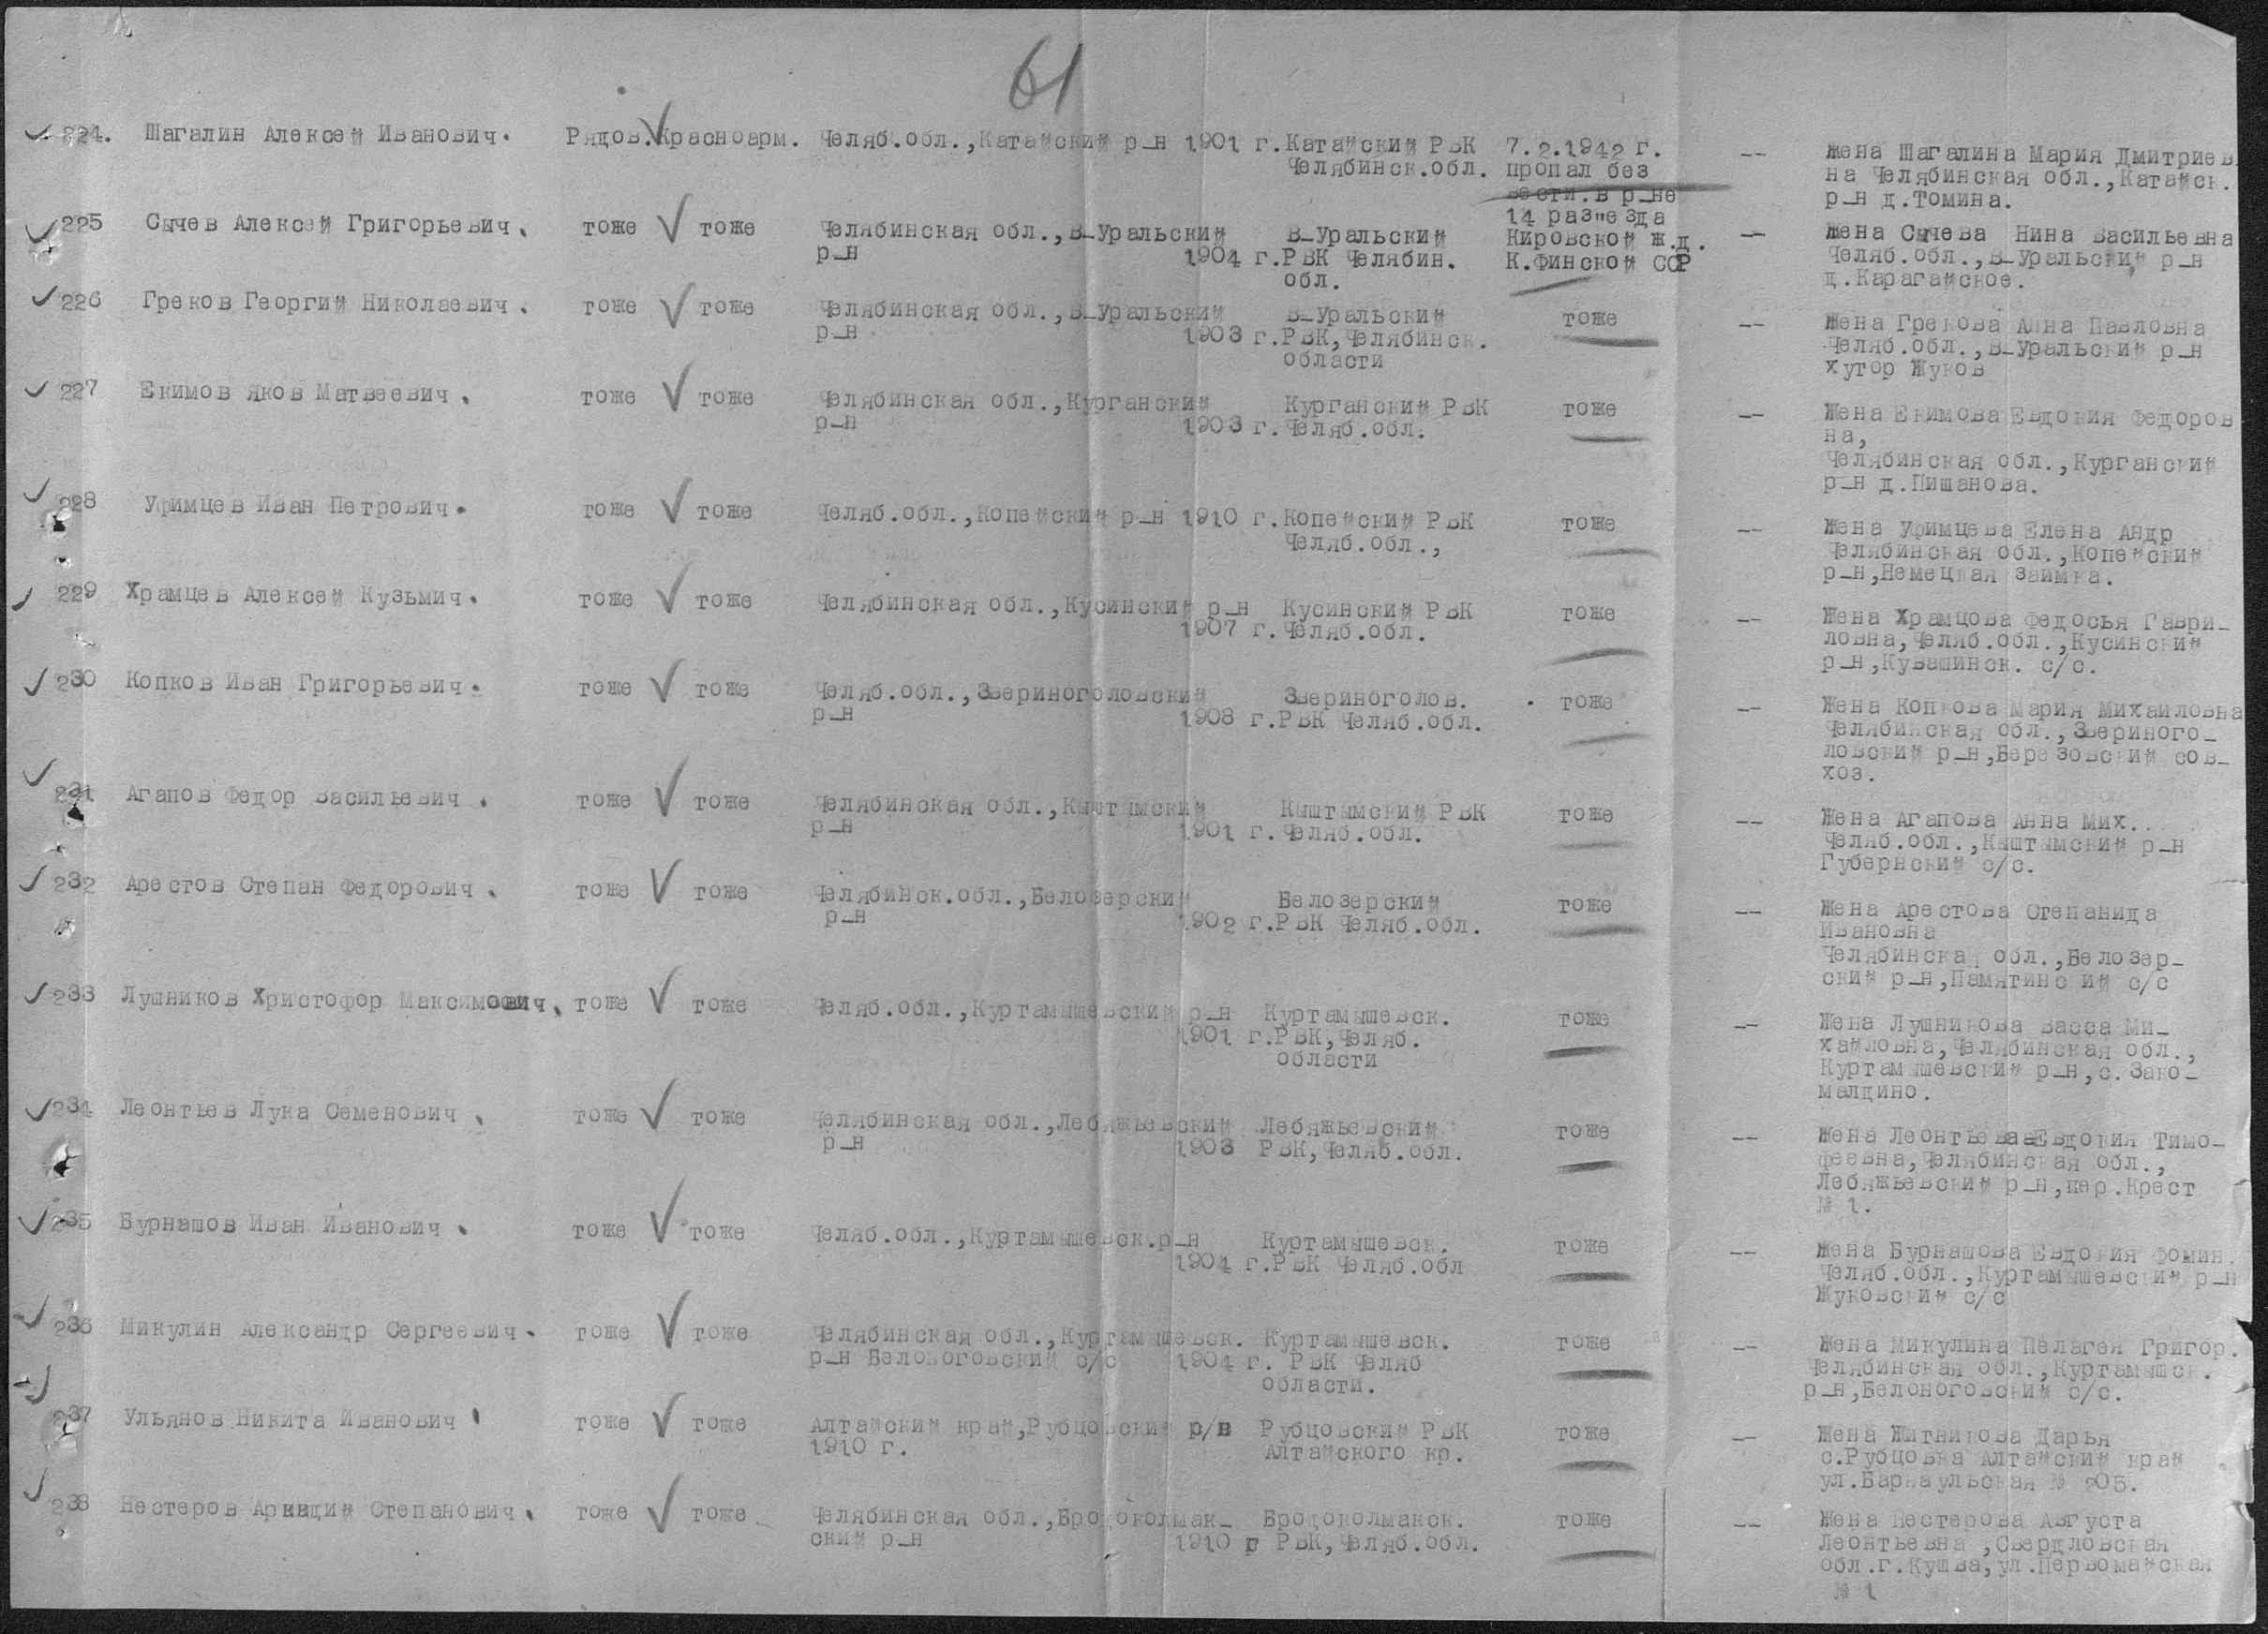 61
224. Шагалин Алексей Иванович. Рядов. Красноарм. Челяб.обл.,Катайский р-н 1901 г. Катайский РВК 7.2.1942 г. -- Жена Шагалина Мария Дмитриев
Челябинск.обл. пропал без на Челябинская обл.,Катайск.
вести.в р-не р-н д.Томина.
14 раз"езда
225 Сычев Алексей Григорьевич. тоже тоже Челябинская обл.,В-Уральский В-Уральский Кировской ж.д. -- Жена Сычева Нина Васильевна
р-н 1904 г. РВК Челябин. К.Финской ССР Челяб.обл.,В-Уральский р-н
обл. д.Карагайское.
226 Греков Георгий Николаевич. тоже тоже Челябинская обл.,В-Уральский В-Уральский тоже -- Жена Грекова Анна Павловна
р-н 1903 г. РВК,Челябинск. Челяб.обл.,В-Уральский р-н
области хутор Жуков
227 Екимов Яков Матвеевич. тоже тоже Челябинская обл.,Курганский Курганский РВК тоже -- Жена Екимова Евдокия Федоров
р-н 1903 г. Челяб.обл. на,
Челябинская обл.,Курганский
р-н д.Пишанова.
228 Уфимцев Иван Петрович. тоже тоже Челяб.обл.,Копейский р-н 1910 г. Копейский РВК тоже -- Жена Уфимцева Елена Андр
Челяб.обл., Челябинская обл.,Копейский
р-н,Немецкая заимка.
229 Храмцев Алексей Кузьмич. тоже тоже Челябинская обл.,Кусинский р-н Кусинский РВК тоже -- Жена Храмцова Федосья Гаври-
1907 г. Челяб.обл. ловна,Челяб.обл.,Кусинский
р-н,Кувашинск. с/с.
230 Копков Иван Григорьевич. тоже тоже Челяб.обл.,Звериноголовский Звериноголов. тоже -- Жена Копкова Мария Михайловна
р-н 1908 г. РВК Челяб.обл. Челябинская обл.,Звериного-
ловский р-н,Березовский сов-
хоз.
231 Агапов Федор Васильевич. тоже тоже Челябинская обл.,Кыштымский Кыштымский РВК тоже -- Жена Агапова Анна Мих..
р-н 1901 г. Челяб.обл. Челяб.обл.,Кыштымский р-н
Губернский с/с.
232 Арестов Степан Федорович. тоже тоже Челябинск.обл.,Белозерский Белозерский тоже -- Жена Арестова Степанида
р-н 1902 г. РВК Челяб.обл. Ивановна
Челябинская обл.,Белозер-
ский р-н,Памятинс ий с/с
233 Лушников Христофор Максимович. тоже тоже Челяб.обл.,Куртамышевский р-н Куртамышевск. тоже -- Жена Лушникова Васса Ми-
1901 г. РВК,Челяб. хайловна,Челябинская обл.,
области Куртамышевский р-н,с.Зако-
малдино.
234 Леонтьев Лука Семенович. тоже тоже Челябинская обл.,Лебяжьевский Лебяжьевский тоже -- Жена Леонтьева Евдокия Тимо-
р-н 1903 РВК,Челяб.обл. феевна,Челябинская обл.,
Лебяжьевский р-н,пер.Крест
№ 1.
235 Бурнашов Иван Иванович. тоже тоже Челяб.обл.,Куртамышевск.р-н Куртамышевск. тоже -- Жена Бурнашова Евдокия Фомин.
1904 г. РВК Челяб.обл Челяб.обл.,Куртамышевский р-н
Жуковский с/с
236 Микулин Александр Сергеевич. тоже тоже Челябинская обл.,Куртамышевск. Куртамышевск. тоже -- Жена Микулина Пелагея Григор.
р-н Белоноговский с/с 1904 г. РВК Челяб Челябинская обл.,Куртамышск.
области. р-н,Белоноговский с/с.
237 Ульянов Никита Иванович тоже тоже Алтайский край,Рубцовский р/н Рубцовский РВК тоже -- Жена Житникова Дарья
1910 г. Алтайского кр. с.Рубцовка Алтайский край
ул.Барнаульская № 205.
238 Нестеров Аркадий Степанович. тоже тоже Челябинская обл.,Бродоколмак- Бродоколмакск. тоже -- Жена Нестерова Августа
ский р-н 1910 г РВК,Челяб.обл. Леонтьевна,Свердловская
обл.г.Кушва,ул.Первомайская
№ 1